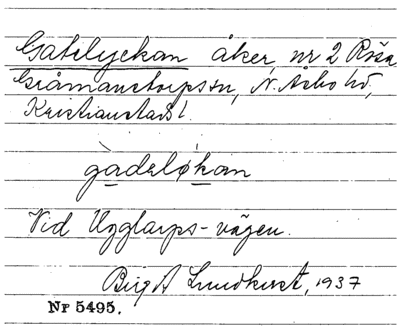 Gatelyckan åker, nr 2 RöSa
Gråmanstorps sn, N. Åsbo hd,
Kristianstads l.
gadeløkan
Vid Ugglarps-vägen.
Birgit Lundkvist, 1937
Nr 5495.